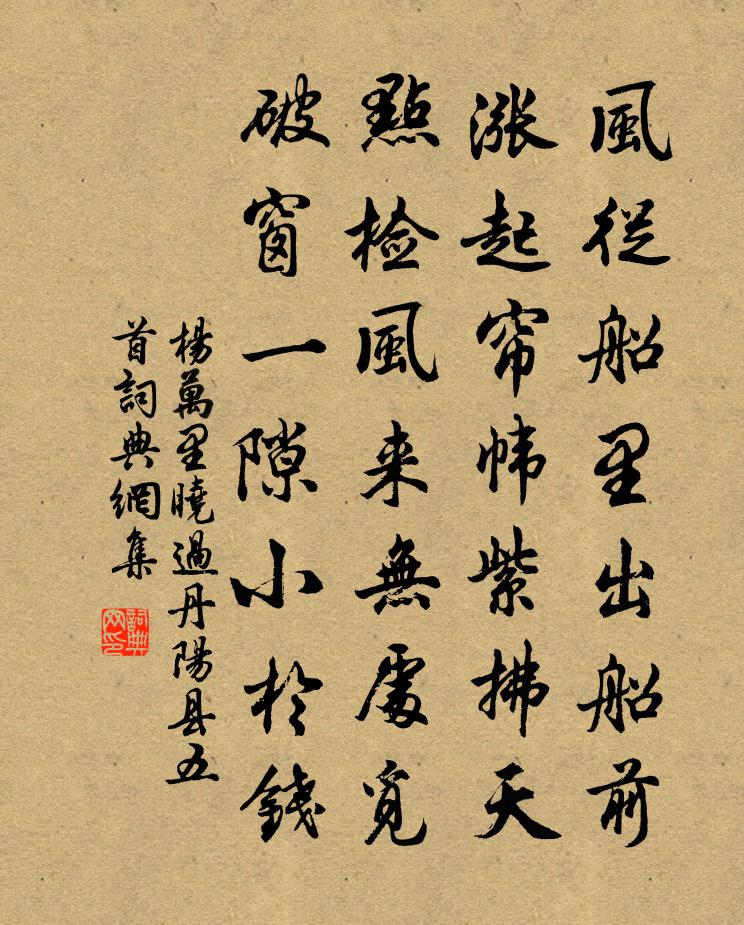 風從船里出船前
漲起帘幃紫拂天
點檢風来無處覓
破窗一隙小於錢
楊萬里曉過丹陽县五
首詞典網集
詞典网印